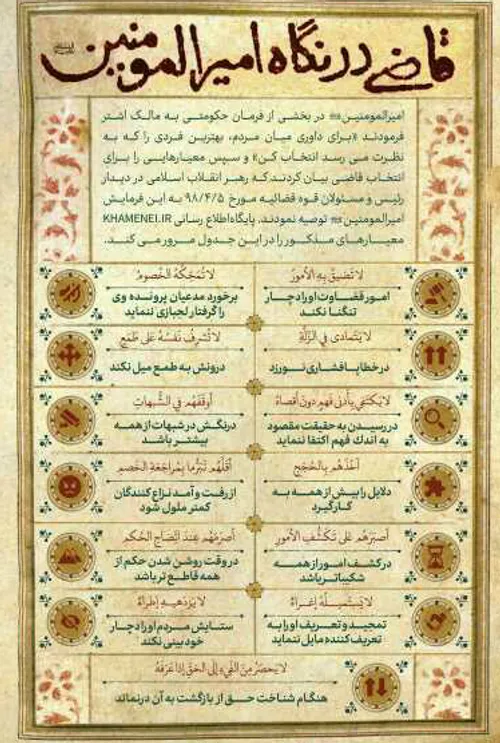 قاضی در نگاه امیرالمومنین
امیرالمومنین در بخشی از فرمان حکومتی به مالک اشتر
فرمودند «برای داوری میان مردم، بهترین فردی را که به
نظرت می رسد انتخاب کن» و سپس معیارهایی را برای
انتخاب قاضی بیان کردند که رهبر انقلاب اسلامی در دیدار
رئیس و مسئولان قوه قضائیه مورخ ۹۸/۴/۵ به این فرمایش
امیرالمومنین توصیه نمودند. پایگاه اطلاع رسانی KHAMENEI.IR
معیارهای مذکور را در این جدول مرور می کند.
لا تَضیقُ بِهِ الأُمورُ
امور قضاوت او را دچار
تنگنا نکند
لا تُمَحِّکُهُ الخُصومُ
برخورد مدعیان پرونده وی
را گرفتار لجبازی ننماید
لا یَتَمادی فِی الزَّلَّةِ
در خطا پافشاری نورزد
لا تُشرِفُ نَفسُهُ عَلی طَمَعٍ
درونش به طمع میل نکند
لا یَکتَفی بِأَدنی فَهمٍ دونَ أَقصاهُ
در رسیدن به حقیقت مقصود
به اندک فهم اکتفا ننماید
أَوقَفَهُم فِی الشُّبُهاتِ
درنگش در شبهات از همه
بیشتر باشد
آخَذَهُم بِالحُجَجِ
دلایل را بیش از همه به
کار گیرد
أَقَلَّهُم تَبَرُّماً بِمُراجَعَةِ الخَصمِ
از رفت و آمد نزاع کنندگان
کمتر ملول شود
أَصبَرَهُم عَلی تَکَشُّفِ الأُمورِ
در کشف امور از همه
شکیباتر باشد
أَصرَمَهُم عِندَ اتِّضاحِ الحُکمِ
در وقت روشن شدن حکم از
همه قاطع تر باشد
لا یَستَمیلُهُ إِغراءٌ
تمجید و تعریف او را به
تعریف کننده مایل ننماید
لا یَزدَهیهِ إِطراءٌ
ستایش مردم او را دچار
خودبینی نکند
لا یَحصَرُ مِنَ الفَیءِ إِلَی الحَقِّ إِذا عَرَفَهُ
هنگام شناخت حق از بازگشت به آن درنماند